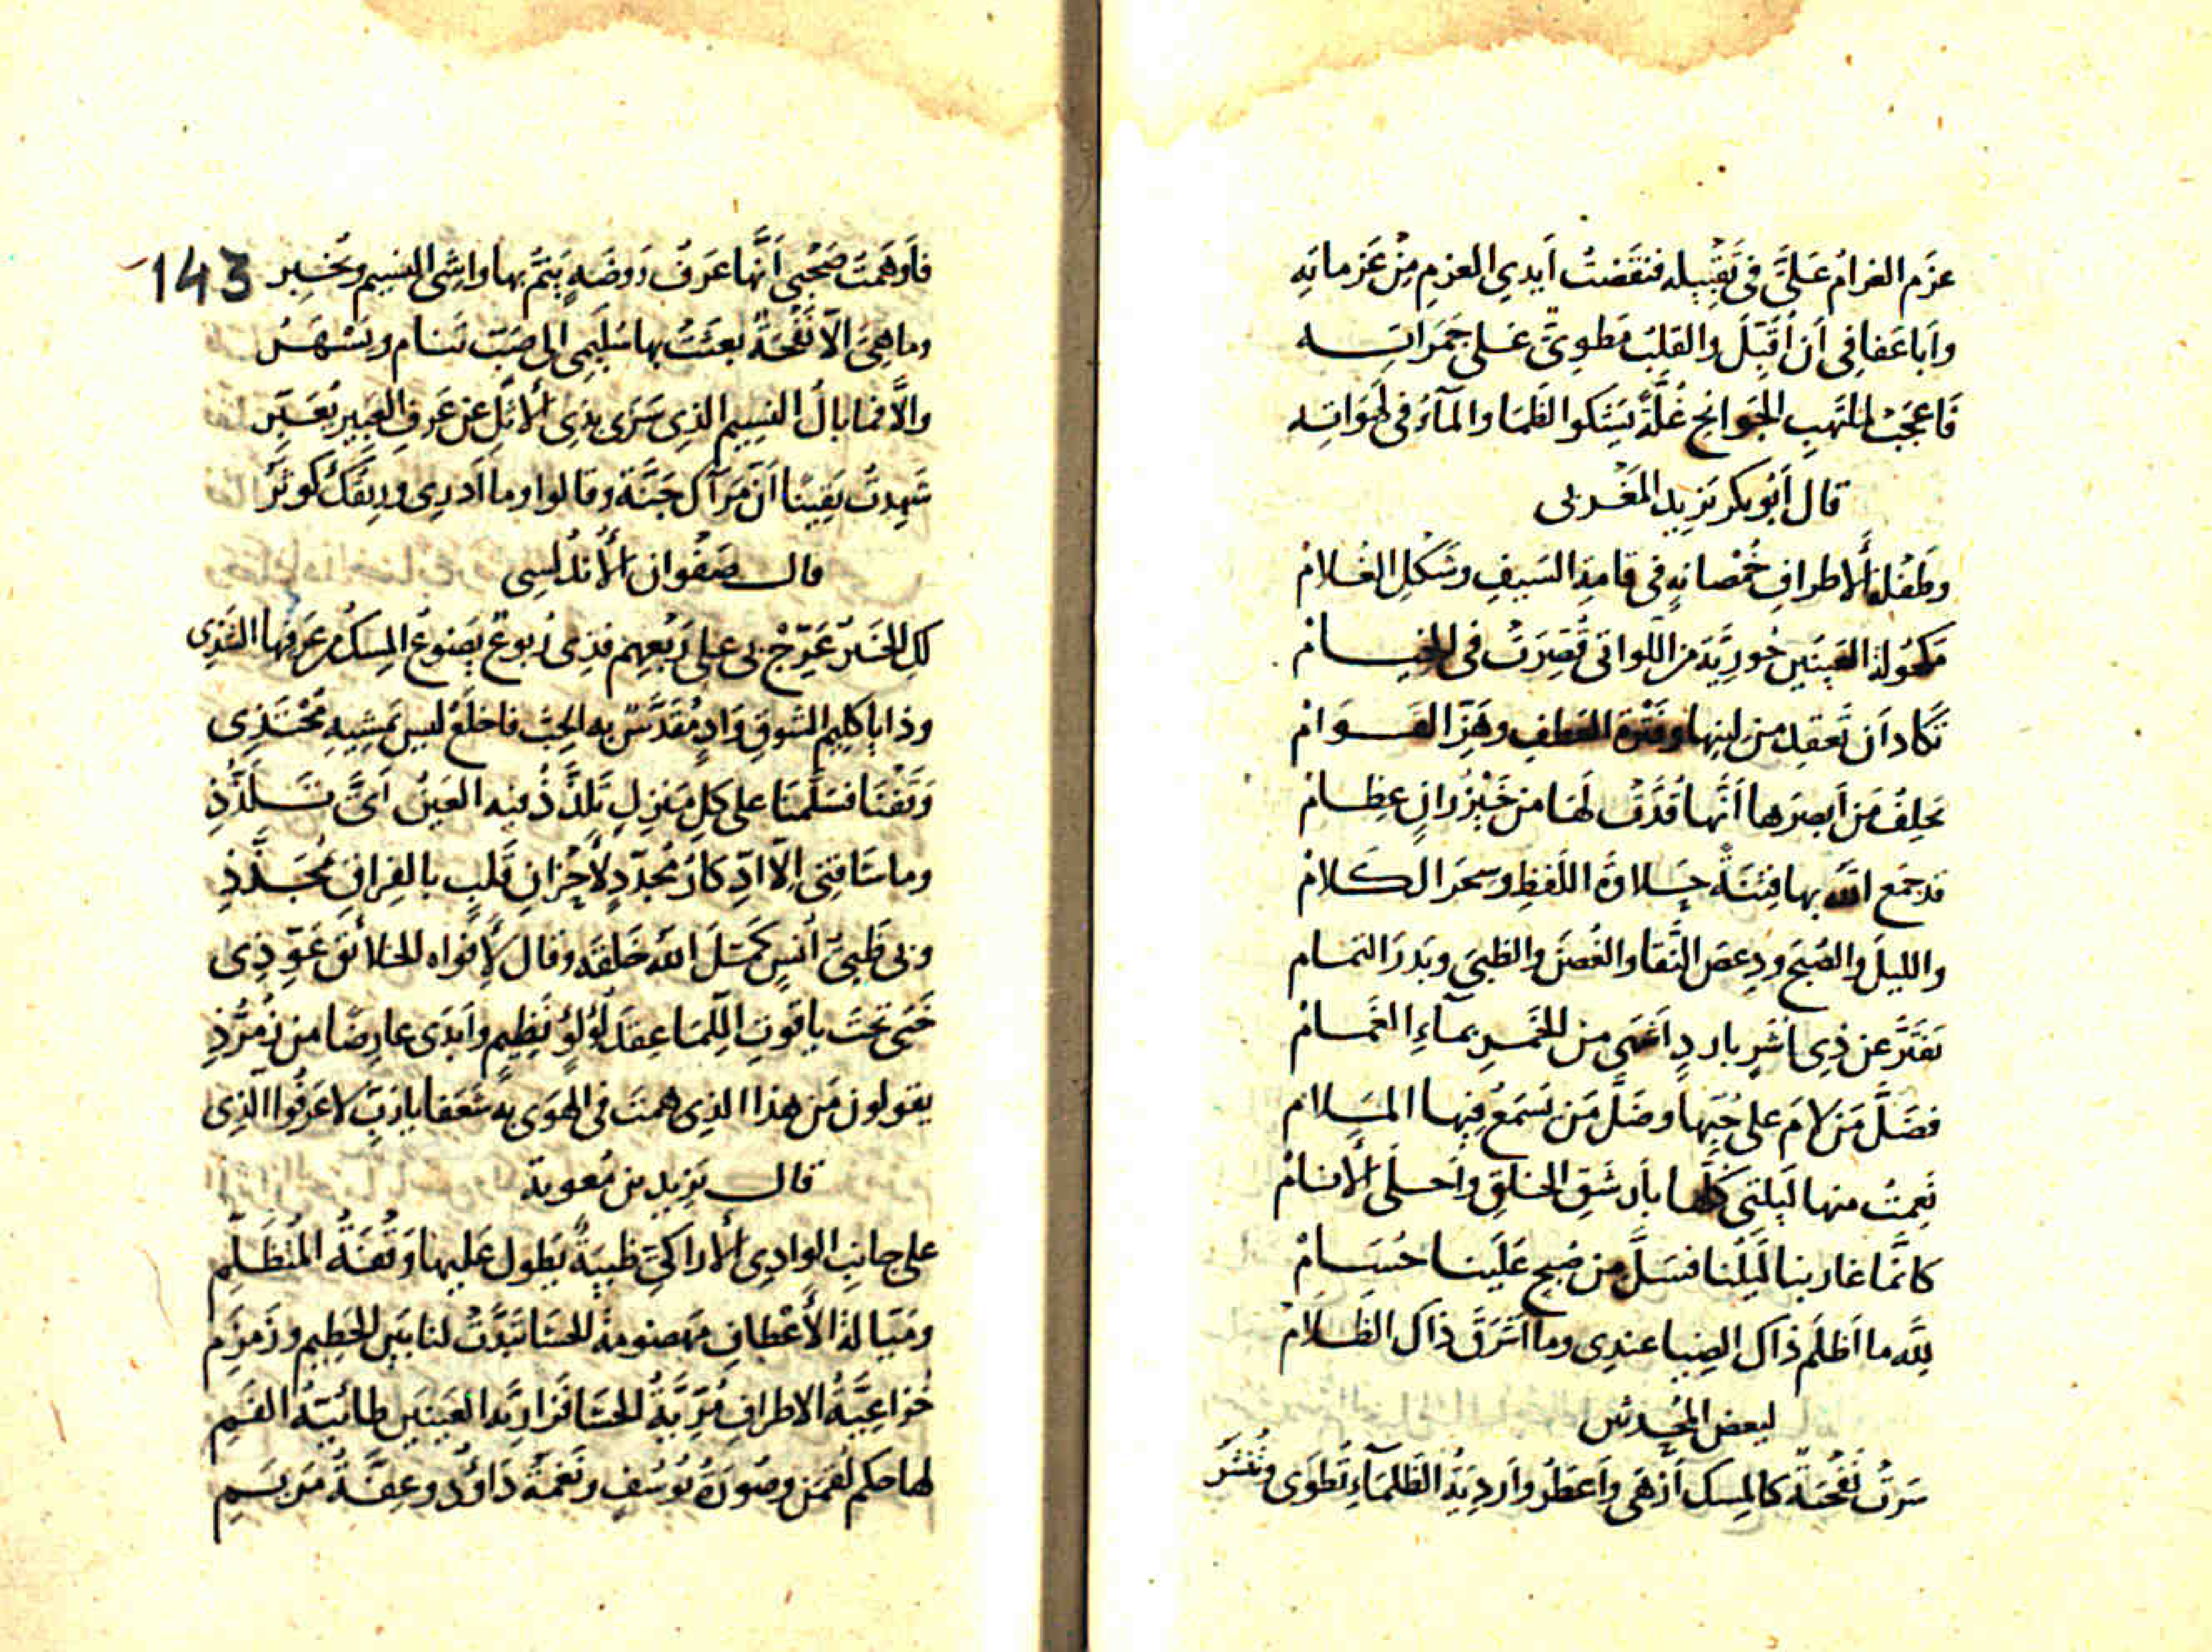 عزَم الغرامُ عَلىَّ في تَقْبيله فنقَضتُ أَيدِي العزمِ مِنْ عَزماتِه
وأَبا عَفافي أَن أُقَبّلَ والقَلبُ مَطوِىٌّ عَلى جَمَراتِــه
فَاعجَبْ لملتَهِبِ الجَوانحِ غُلَّةً يَشكوا الظَمَا والمآءُ في لهَوَاتِه
قال أَبُوبكر يَزيد المَغْربي
وطَفْلةُ الاطرافِ خُمْصانةٍ في قامةِ السَيفِ وشَكلِ الغُلامْ
مَكحُولة العَينَين حُورِيَّة مَن اللّواتى قُصِرَتْ في الخيــامْ
تَكاد أَن تُعقد من لينِها وفَتْرة العَطفِ وهَزِّ القَــوَامْ
يَحلِفُ مَن أَبصَرَها أَنَّها قُدَّتْ لَهَا من خَيْزُرانٍ عِظــامْ
قد جمَع الله بها فِتنَةً حَلاوة اللَفظِ وسِحَر الكَــلامْ
والليلَ والصُبحَ ودِعصَ النَّقا والغُصنَ والظبيَ وبَدرَ التمــام
تَفتَرُّ عن ذِي اشُرٍ باردٍ اَشهَى من الخَمــرِ بمآءِ الغَمــامْ
فضَلَّ مَن لامَ على حُبِّها وضَلَّ مَن يَسمَعُ فِيها المَــلامْ
نَعِمتُ منها لَيلتى كلّها بأرشَقِ الخلقِ وأَحــلَى الأنــامْ
كانّما غار بنا لَيلُنا فسَلَّ من صُبحٍ عَلَينــا حُسَــامْ
لِلّه ما اَظلَم ذاك الضِيا عندِى وما اَشرَقَ ذاك الظــلامْ
لبعض المُحدثين
سَرتْ نَفْحَةً كالمِسك اَزهَى وأَعطَرُ واَردِيَةُ الظَلمآءِ تُطوَى وتُنشَرُ
فأَوهَمتُ صَحْبي أَنَّها عَرفُ رَوضَةٍ يَنِمُّ بها واشِى النسيم وتُخــبِر
وما هِيَ الاّ نَفْحَةٌ بعَثَتْ بها سُلَيمى الى صَبٍّ تَنــام ويَسْهَــرُ
والّا فما بالُ النسِيمِ الذِى سَرَى بذِى الأثلِ عن عَرفِ العَبِير يُعَبّرِ
شَهِدتُ يَقِينًا اَنَّ مَرآك جَنَّة وقالوا وما اَدرِى ورِيقكُ كوثَرُ
قالــ صَفْوان الأندلسِى
لكَ الخَيرُ عَرِّجْ بي على رَبْعِهِم فذِى رُبوعٌ يَضوعُ المِسكُ من عَرفها الشذِى
وذا يا كلِيم الشَوقِ وَادٍ مُقَدَّسٌ به الحِبّ فاخلَعْ ليس يَمشِيهِ مُحْتَذِى
وَقَفْنا فسَلَّمنَا على كلِ مَنزِلٍ تَلَذَّذُ فيه العَينُ اَىَّ تَــلَذُّذِ
وما شَاقَنِى الّا ادِّكارٌ مُجدّدٍ لأَحزانِ قَلبٍ بالفِراقِ مُجَــذَّذِ
وبي ظَبيُ أُنسٍ كَمَّلَ الله خَلقَه وقال لأفواه الخلائقَ عَوّذِى
خَبَى تحتَ ياقوتِ اللِّمَا عِقدَ لُؤلُؤٍ نَظِيمٍ واَبدَى عارِضًا من زُمرُّذِ
يقولون مَن هذا الذِى همتَ في الهوَى به شَغَفًا يا رَبِّ لا عَرَفُوا الذِى
قالــ يَزِيد بن مُعوية
على جانِبِ الوادِى الأراكيِّ ظَبيَةٌ يَطول عَليها وَقْفَةُ المُتظَــلِّمِ
ومَيّالة الأَعْطافِ مَهضومة الحشا تَبَدَّتْ لنا بَين الحَطيمِ وزَمزَم
خُزاعِيَّةُ الاطرافِ مُرِّيَّةُ الحشا فَزاريّة العَينَين طائيّةُ الفَــمِ
لها حكم لُقمَن وصُورَةُ يُوسُفٍ ونَغمَةُ دَاوُدٍ وعِفَّــةُ مَريَــمِ
143